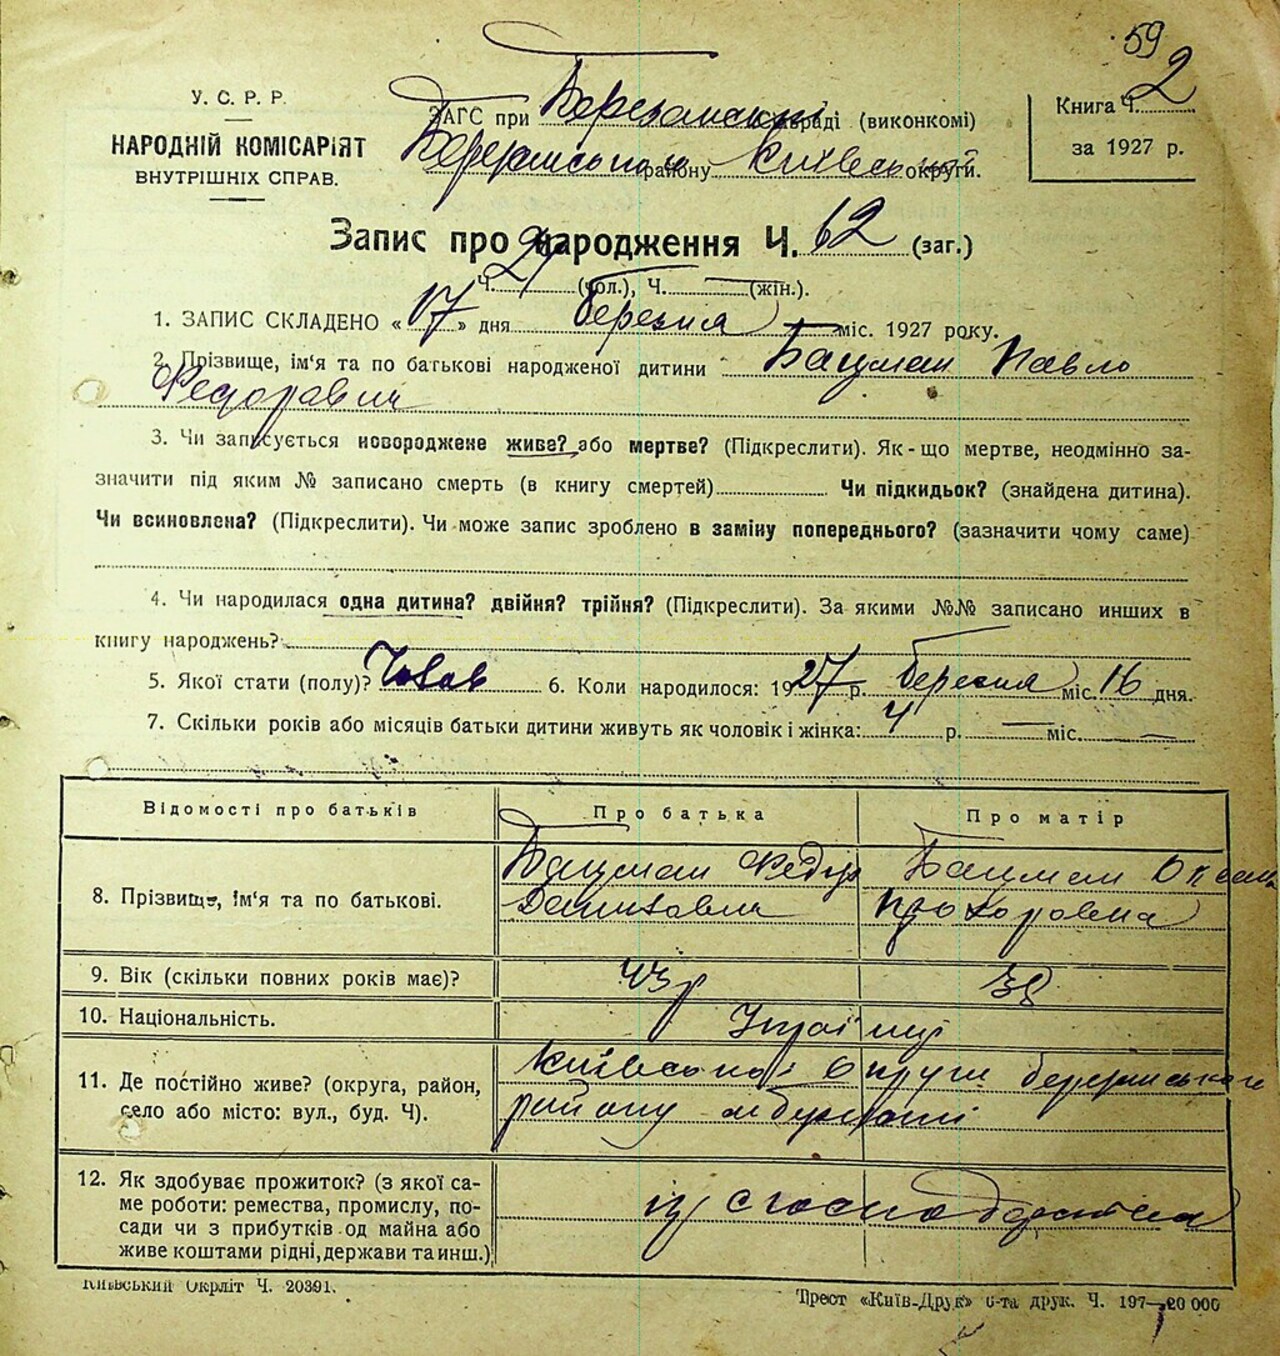 59
У. С. Р. Р.
НАРОДНІЙ КОМІСАРІЯТ
ВНУТРІШНІХ СПРАВ.
ЗАГС при Березанській раді (виконкомі)
Березанського району Київської округи.
Книга Ч. 2
за 1927 р.
Запис про народження Ч. 62 (заг.)
Ч. 29 (чол.), Ч. — (жін.).
1. ЗАПИС СКЛАДЕНО «17» дня березня міс. 1927 року.
2. Прізвище, ім'я та по батькові народженої дитини Бацман Павло
Федоравич
3. Чи записується новороджене живе? або мертве? (Підкреслити). Як-що мертве, неодмінно за-
значити під яким № записано смерть (в книгу смертей) Чи підкидьок? (знайдена дитина).
Чи всиновлена? (Підкреслити). Чи може запис зроблено в заміну попереднього? (зазначити чому саме)
4. Чи народилася одна дитина? двійня? трійня? (Підкреслити). За якими №№ записано инших в
книгу народжень?
5. Якої стати (полу)? Чолов 6. Коли народилося: 1927 р. березня міс. 16 дня.
7. Скільки років або місяців батьки дитини живуть як чоловік і жінка: 4 р. — міс. —
Відомості про батьків Про батька Про матір
8. Прізвище, ім'я та по батькові.
Бацман Федір
Данилович
Бацман
Прохоровна
9. Вік (скільки повних років має)? 43 р 38
10. Національність. Українці
11. Де постійно живе? (округа, район,
село або місто: вул., буд. Ч).
Київської Округи березанського
району
12. Як здобуває прожиток? (з якої са-
ме роботи: ремества, промислу, по-
сади чи з прибутків од майна або
живе коштами рідні, держави та инш.)
із
Київський Окрліт Ч. 20391.
Трест «Київ-Друк» 6-та друк. Ч. 197—20 000